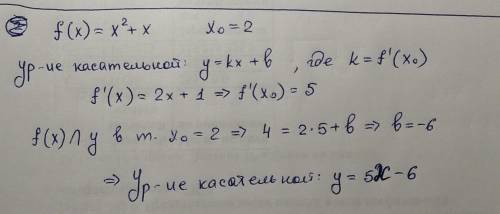 ② f(x) = x² + x    x₀ = 2
Ур-ие касательной: y = kx + b , где k = f'(x₀)
f'(x) = 2x + 1 ⇒ f'(x₀) = 5
f(x) ∩ y в т. x₀ = 2 ⇒ 4 = 2·5 + b ⇒ b = -6
⇒ Ур-ие касательной: y = 5x - 6